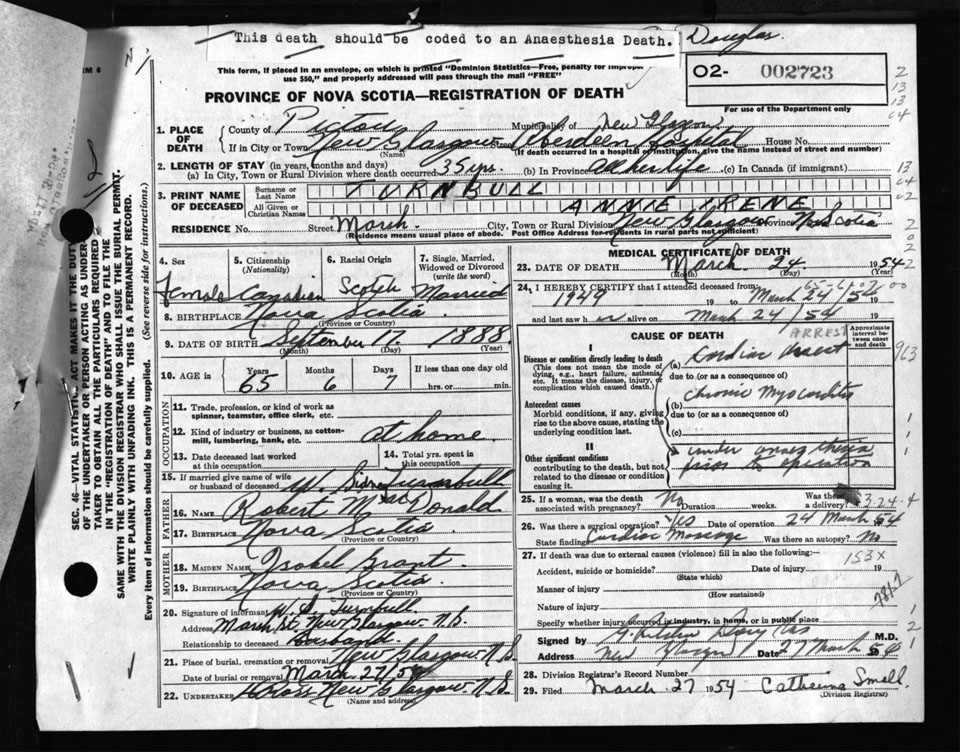 This death should be coded to an Anaesthesia Death. Douglas.
This form, if placed in an envelope, on which is printed "Dominion Statistics—Free, penalty for improper
use $50," and properly addressed will pass through the mail "FREE"
02- 002723
For use of the Department only
PROVINCE OF NOVA SCOTIA—REGISTRATION OF DEATH
1. PLACE OF DEATH
County of Pictou Municipality of New Glasgow
If in City or Town New Glasgow (Name) Street Aberdeen Hospital House No.
(If death occurred in a hospital or institution, give the name instead of street and number)
2. LENGTH OF STAY (in years, months and days)
(a) In City, Town or Rural Division where death occurred 35 yrs. (b) In Province all her life (c) In Canada (if immigrant)
3. PRINT NAME OF DECEASED
Surname or Last Name TURNBULL
All Given or Christian Names ANNIE IRENE
RESIDENCE No. Street Marsh City, Town or Rural Division New Glasgow Province Nova Scotia
(Residence means usual place of abode. Post Office Address for residents in rural parts not sufficient)
4. Sex Female
5. Citizenship (Nationality) Canadian
6. Racial Origin Scotch
7. Single, Married, Widowed or Divorced (write the word) Married
8. BIRTHPLACE Nova Scotia
(Province or Country)
9. DATE OF BIRTH September 17, 1888
(Month) (Day) (Year)
10. AGE in Years 65 Months 6 Days 7 If less than one day old hrs. or min.
OCCUPATION
11. Trade, profession, or kind of work as
spinner, teamster, office clerk, etc.
12. Kind of industry or business, as cotton-
mill, lumbering, bank, etc. at home
13. Date deceased last worked
at this occupation
14. Total yrs. spent in
this occupation
15. If married give name of wife
or husband of deceased W. Turnbull
FATHER
16. NAME Robert Mac Donald
17. BIRTHPLACE Nova Scotia
(Province or Country)
MOTHER
18. MAIDEN NAME Isobel Grant
19. BIRTHPLACE Nova Scotia
(Province or Country)
20. Signature of informant W. S. Turnbull
Address Marsh St. New Glasgow. N.S.
Relationship to deceased Husband.
21. Place of burial, cremation or removal New Glasgow. N.S.
Date of burial or removal March 27/54
22. UNDERTAKER New Glasgow. N.S.
(Name and address)
MEDICAL CERTIFICATE OF DEATH
23. DATE OF DEATH March 24 1954
(Month) (Day) (Year)
24. I HEREBY CERTIFY that I attended deceased from:
1949 19 to March 24/54 19
and last saw her alive on March 24/54 19
CAUSE OF DEATH
Approximate interval between onset and death
I
Disease or condition directly leading to death
(This does not mean the mode of dying, e.g., heart failure, asthenia, etc. It means the disease, injury, or complication which caused death.)
ARREST
(a) Cardiac Arrest
due to (or as a consequence of)
Antecedent causes
Morbid conditions, if any, giving rise to the above cause, stating the underlying condition last.
(b) Chronic Myocarditis
due to (or as a consequence of)
(c)
II
Other significant conditions
contributing to the death, but not related to the disease or condition causing it.
under anaesthesia
prior to operation
25. If a woman, was the death
associated with pregnancy? No Duration weeks. Was there a delivery?
26. Was there a surgical operation? Yes Date of operation 24 March 54
State findings Cardiac Massage Was there an autopsy? No
27. If death was due to external causes (violence) fill in also the following:—
Accident, suicide or homicide? Date of injury 19
(State which)
153X
Manner of injury
(How sustained)
Nature of injury
Specify whether injury occurred in industry, in home, or in public place
Signed by M.D.
Address New Glasgow Date 27 March 54
28. Division Registrar's Record Number
29. Filed March 27 1954 Catherine Small
(Division Registrar)
SEC. 46—VITAL STATISTICS ACT MAKES IT THE DUTY
OF THE UNDERTAKER OR PERSON ACTING AS UNDER-
TAKER TO OBTAIN ALL THE PARTICULARS REQUIRED
IN THE "REGISTRATION OF DEATH" AND TO FILE THE
SAME WITH THE DIVISION REGISTRAR WHO SHALL ISSUE THE BURIAL PERMIT.
WRITE PLAINLY WITH UNFADING INK. THIS IS A PERMANENT RECORD.
Every item of information should be carefully supplied. (See reverse side for instructions.)